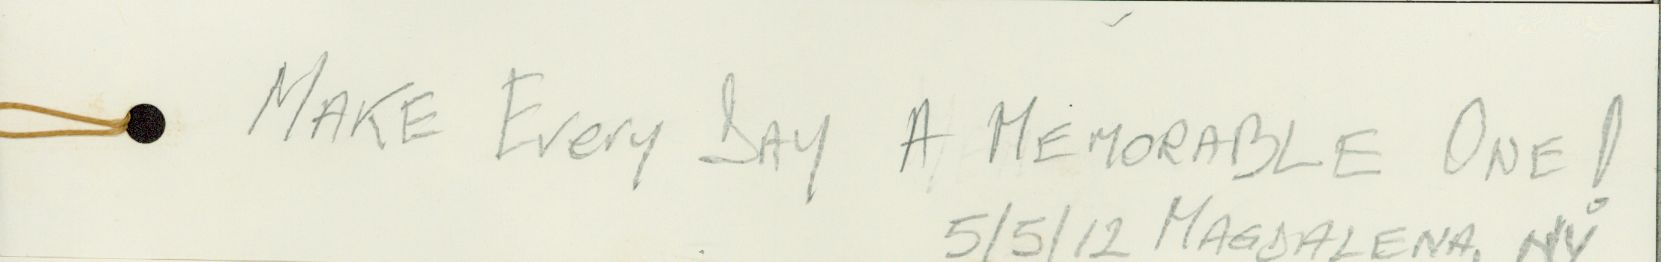 MAKE Every DAY A MEMORABLE ONE!
5/5/12 MAGDALENA, NY